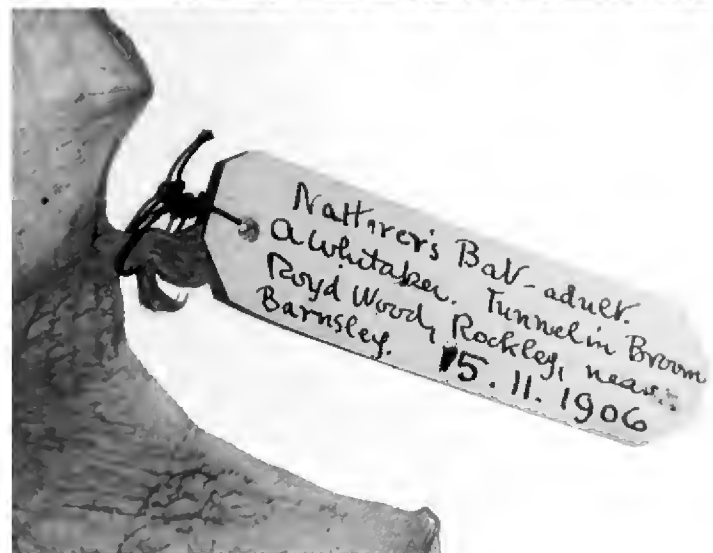 Natterer's Bat - adult.
A Whitaker. Tunnel in Broom
Royd Wood, Rockley, near
Barnsley. 15.11.1906